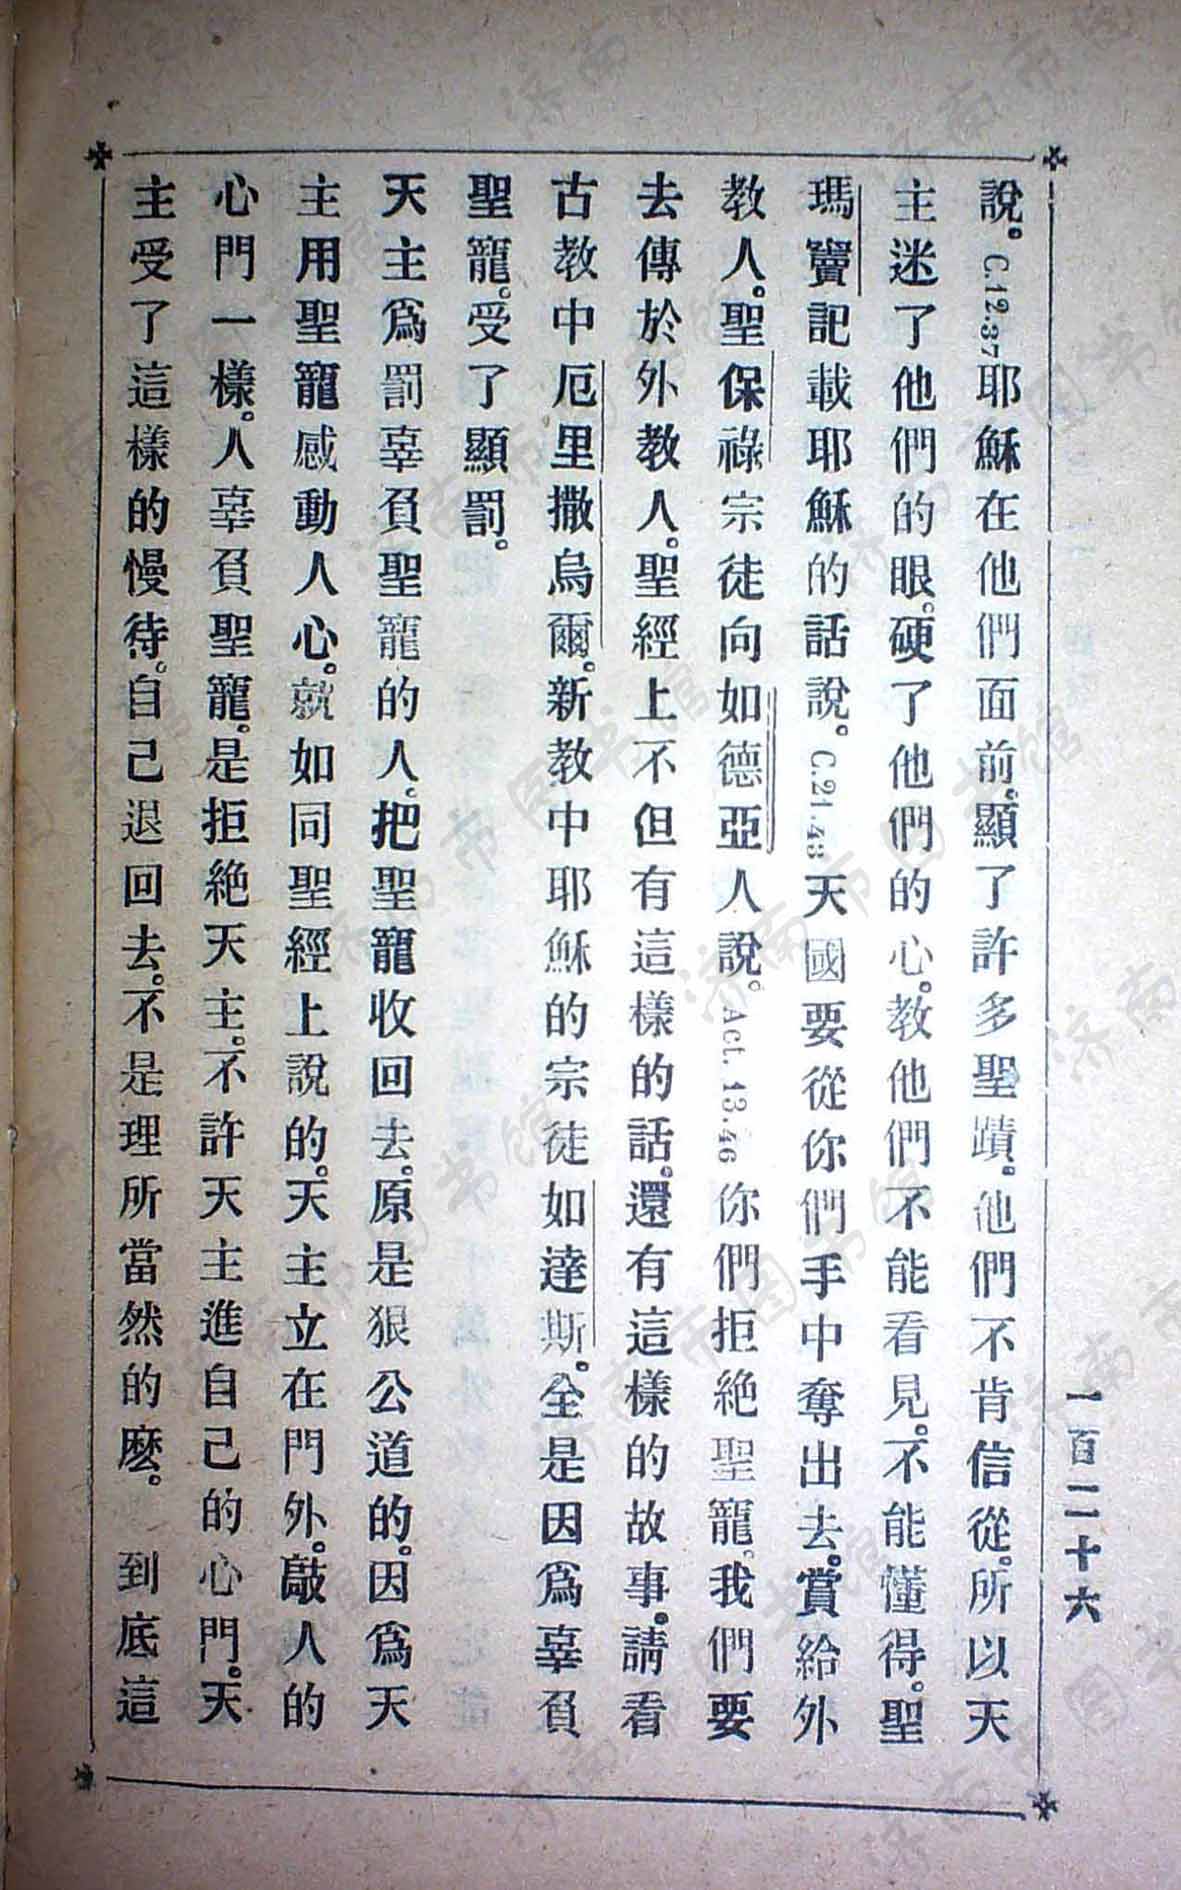 一百二十六
說。C.12.37耶穌在他們面前。顯了許多聖蹟。他們不肯信從。所以天
主迷了他們的眼。硬了他們的心。教他們不能看見。不能懂得。聖
瑪竇記載耶穌的話說。C.21.43天國要從你們手中奪出去。賞給外
教人。聖保祿宗徒向如德亞人說。Act. 13.46你們拒絕聖寵。我們要
去傳於外教人。聖經上不但有這樣的話。還有這樣的故事。請看
古教中厄里撒烏爾。新教中耶穌的宗徒如達斯。全是因爲辜負
聖寵。受了顯罰。
天主爲罰辜負聖寵的人。把聖寵收回去。原是狠公道的。因爲天
主用聖寵感動人心。就如同聖經上說的。天主立在門外。敲人的
心門一樣。人辜負聖寵。是拒絕天主。不許天主進自己的心門。天
主受了這樣的慢待。自己退回去。不是理所當然的麽。 到底這
济南市图书馆